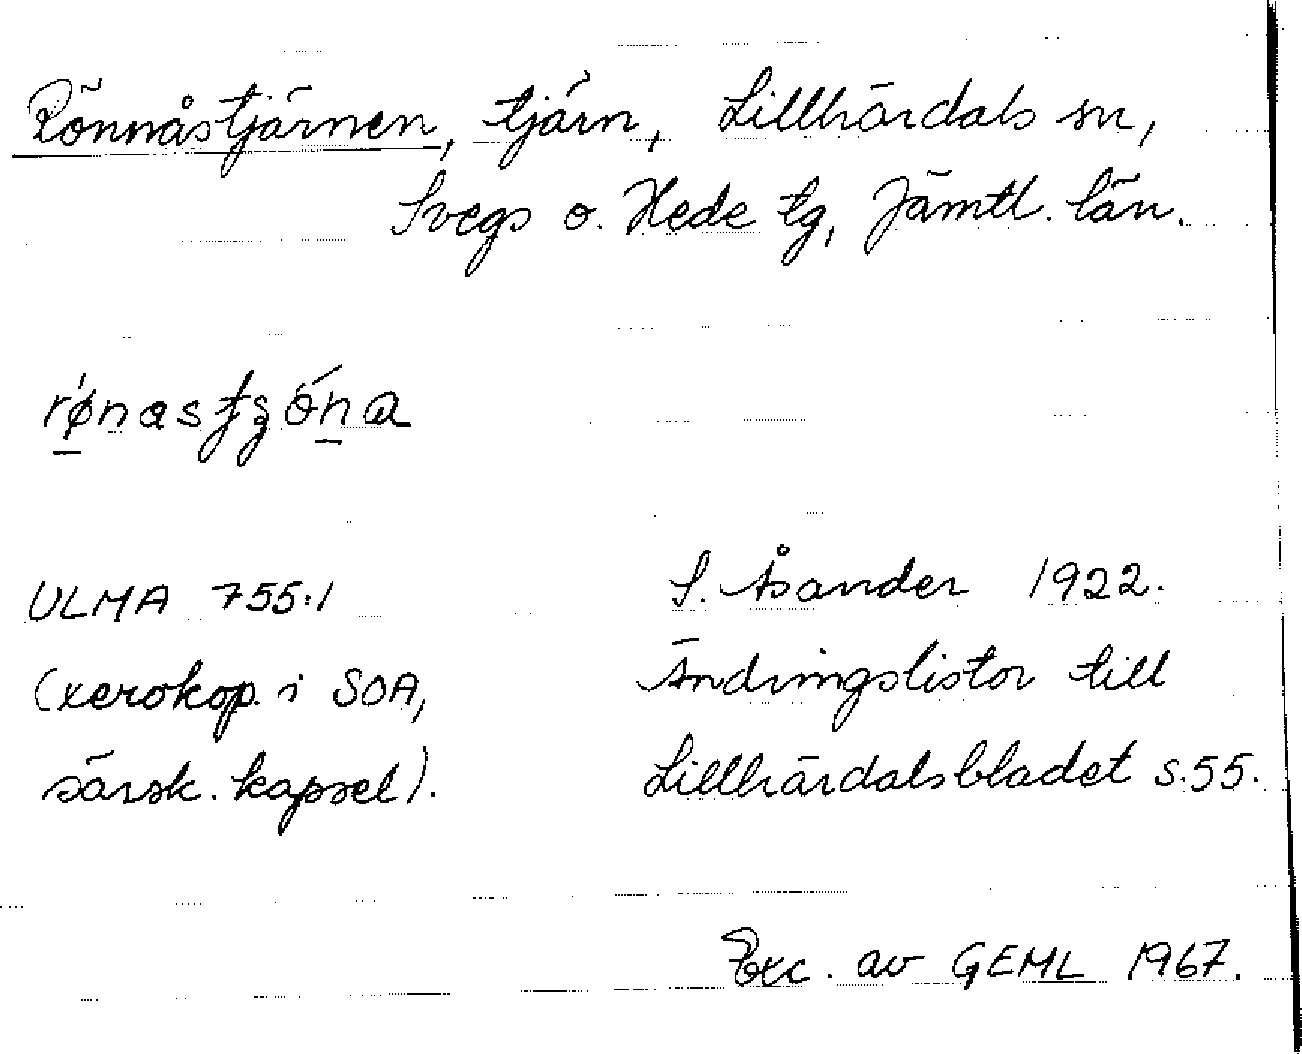 Rönnåstjärnen, tjärn, Lillhärdals sn,
Svegs o. Hede tg, Jämtl. län.
ULMA 755:1
S. Åsander 1922.
(xerokop. i SOA,
Ändringslistor till
särsk. kapsel).
Lillhärdalsbladet s.55.
Exc. av GEML 1967.